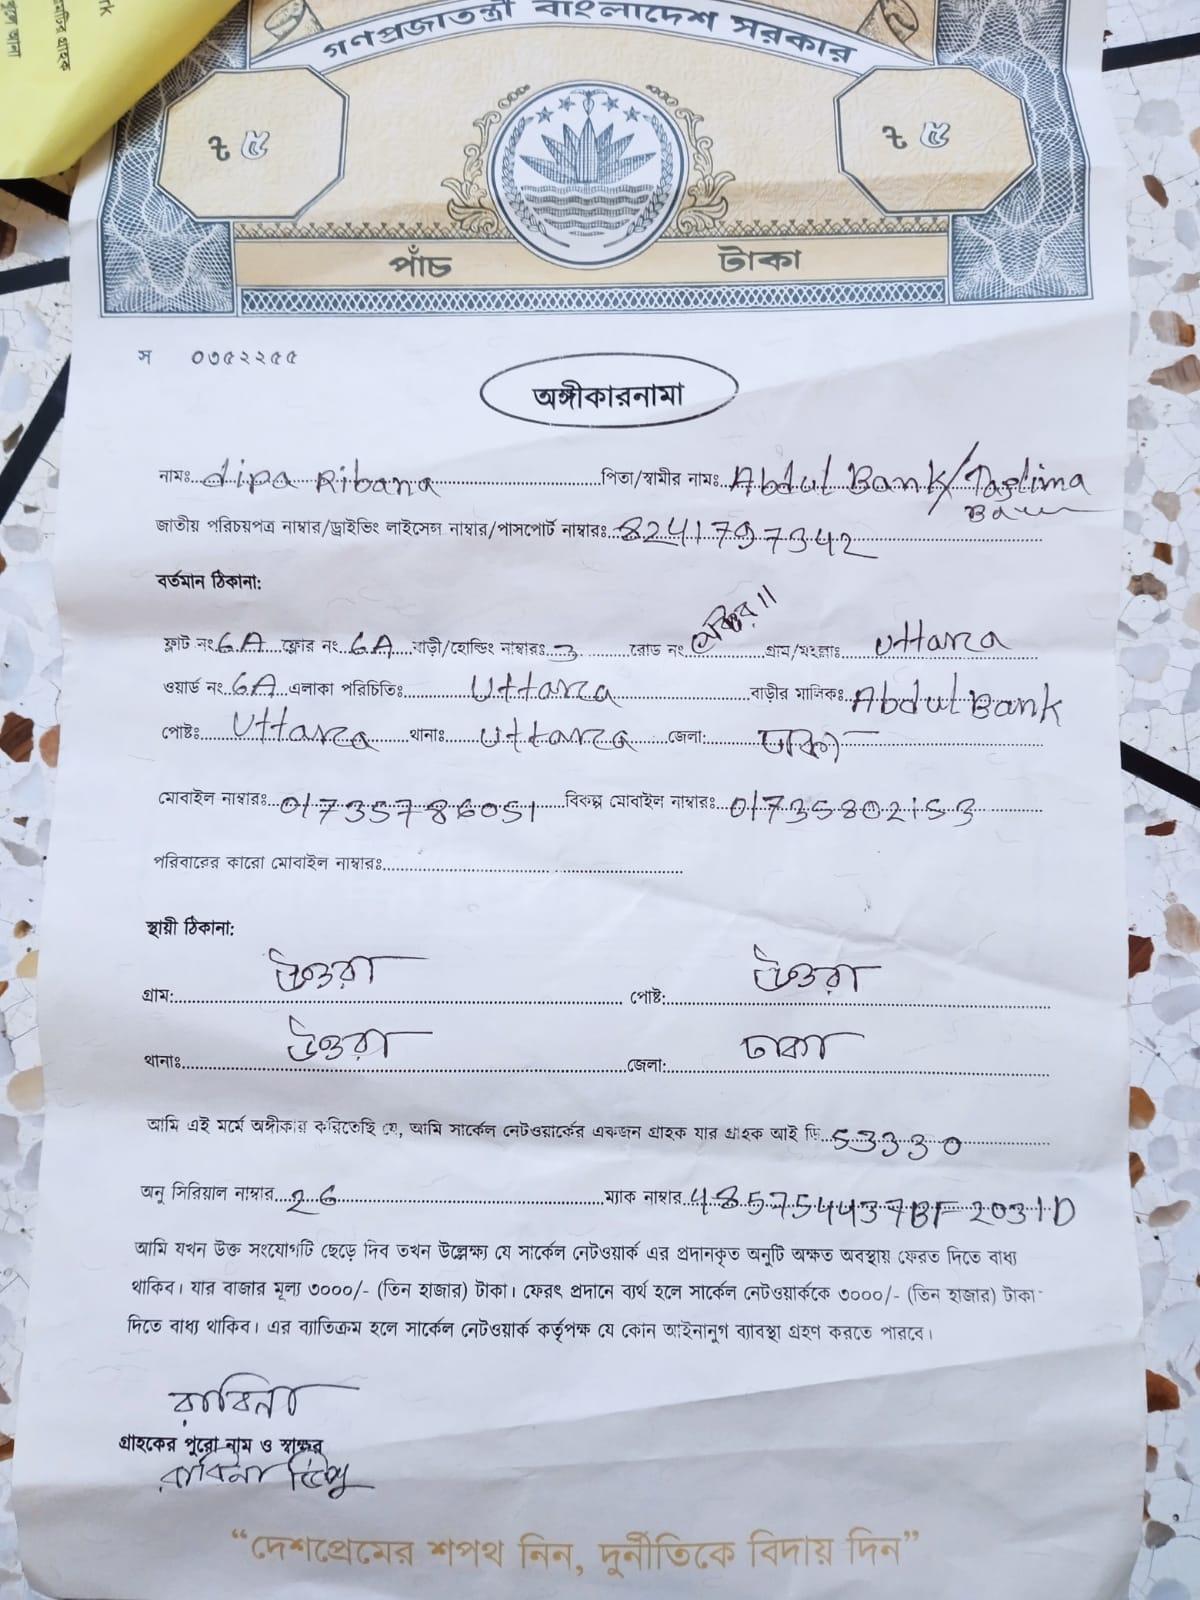 গণপ্রজাতন্ত্রী বাংলাদেশ সরকার
৳ ৫ ৳ ৫
পাঁচ টাকা
স ০৩৫২২৫৫
অঙ্গীকারনামা
নামঃ dipa Ribana পিতা/স্বামীর নামঃ Abdul Bank/Taslima
জাতীয় পরিচয়পত্র নাম্বার/ড্রাইভিং লাইসেন্স নাম্বার/পাসপোর্ট নাম্বারঃ 8241797342
বর্তমান ঠিকানা:
ফ্লাট নং 6A ফ্লোর নং 6A বাড়ী/হোল্ডিং নাম্বারঃ 3 রোড নং গ্রাম/মহল্লাঃ Uttara
ওয়ার্ড নং 6A এলাকা পরিচিতিঃ Uttara বাড়ীর মালিকঃ Abdul Bank
পোষ্টঃ Uttara থানাঃ Uttara জেলা: ঢাকা
মোবাইল নাম্বারঃ 01735786051 বিকল্প মোবাইল নাম্বারঃ 01735802153
পরিবারের কারো মোবাইল নাম্বারঃ
স্থায়ী ঠিকানা:
গ্রাম: উত্তরা পোষ্ট: উত্তরা
থানাঃ উত্তরা জেলা: ঢাকা
আমি এই মর্মে অঙ্গীকার করিতেছি যে, আমি সার্কেল নেটওয়ার্কের একজন গ্রাহক যার গ্রাহক আই ডি 53330
অনু সিরিয়াল নাম্বার 26 ম্যাক নাম্বার 485754437BF2031D
আমি যখন উক্ত সংযোগটি ছেড়ে দিব তখন উল্লেক্ষ্য যে সার্কেল নেটওয়ার্ক এর প্রদানকৃত অনুটি অক্ষত অবস্থায় ফেরত দিতে বাধ্য
থাকিব। যার বাজার মূল্য ৩০০০/- (তিন হাজার) টাকা। ফেরৎ প্রদানে ব্যর্থ হলে সার্কেল নেটওয়ার্ককে ৩০০০/- (তিন হাজার) টাকা
দিতে বাধ্য থাকিব। এর ব্যাতিক্রম হলে সার্কেল নেটওয়ার্ক কর্তৃপক্ষ যে কোন আইনানুগ ব্যাবস্থা গ্রহণ করতে পারবে।
রাবিনা
গ্রাহকের পুরো নাম ও স্বাক্ষর
রাবিনা
“দেশপ্রেমের শপথ নিন, দুর্নীতিকে বিদায় দিন”